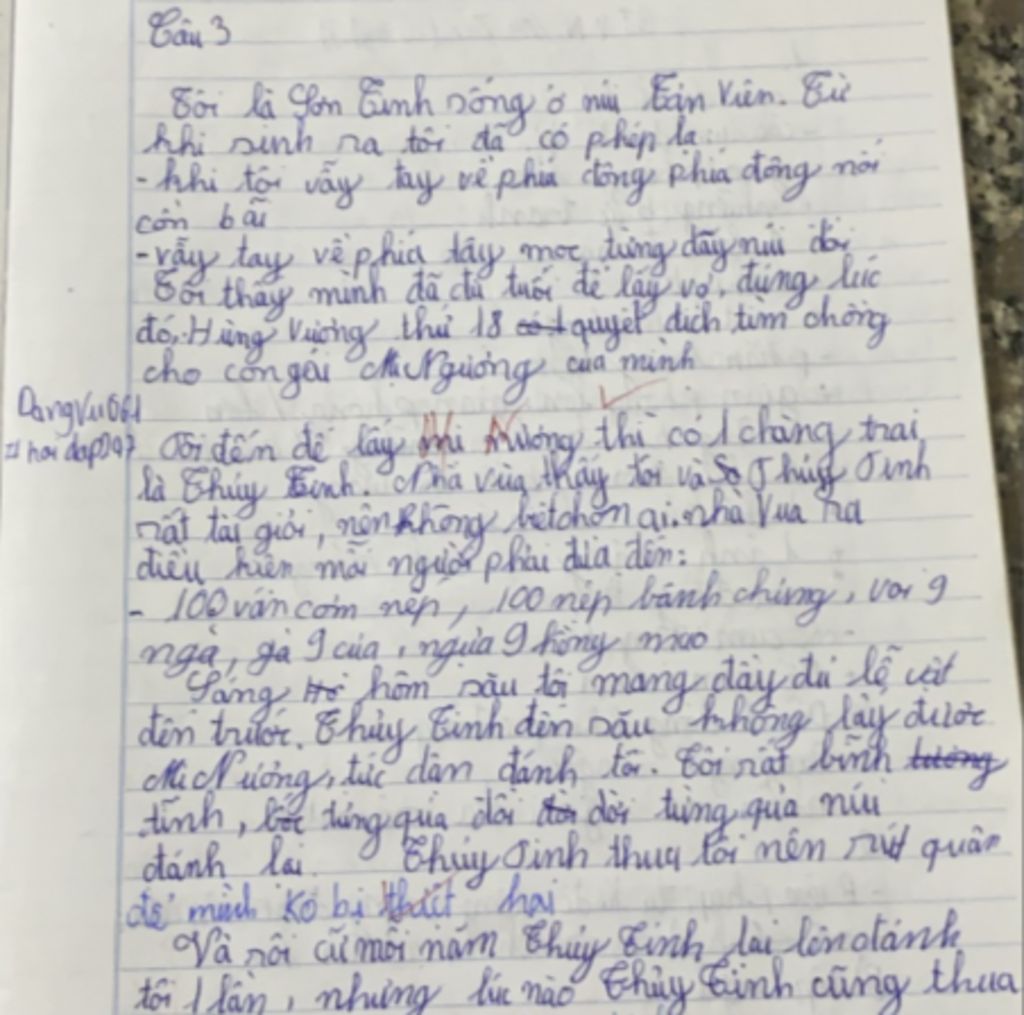 Câu 3
Tôi là Sơn Tinh sống ở núi Tản Viên. Từ
khi sinh ra tôi đã có phép lạ
- khi tôi vẫy tay về phía đông phía đông nổi
cồn bãi
- vẫy tay về phía tây mọc từng dãy núi đồi
Tôi thấy mình đã đủ tuổi để lấy vợ, đúng lúc
đó, Hùng Vương thứ 18 quyết địch tìm chồng
cho con gái Mị Ngương của mình
DangVu061
# hoidap247
Tôi đến để lấy Mị Nương thì có 1 chàng trai
là Thủy Tinh. Nhà vua thấy tôi và Thủy Tinh
rất tài giỏi, nên không biết chọn ai. nhà Vua ra
điều kiện mỗi người phải đưa đến:
- 100 ván cơm nếp, 100 nép bánh chưng, voi 9
ngà, gà 9 cựa, ngựa 9 hồng mao
Sáng hôm sau tôi mang đầy đủ lễ vật
đến trước. Thủy Tinh đến sau không lấy được
Mị Nương, tức dận đánh tôi. Tôi rất bình
tĩnh, từng quả đồi dời từng quả núi
đánh lại Thủy Tinh thua tôi nên rút quân
để mình ko bị thiệt hại
Và rồi cứ mỗi năm Thủy Tinh lại lên đánh
tôi 1 lần, nhưng lúc nào Thủy Tinh cũng thua